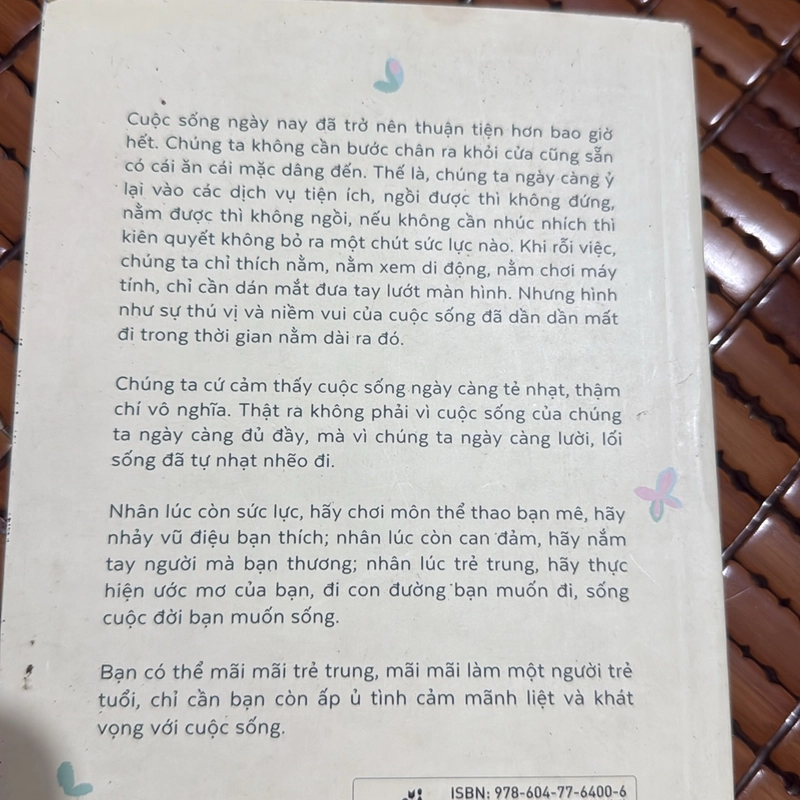 Cuộc sống ngày nay đã trở nên thuận tiện hơn bao giờ
hết. Chúng ta không cần bước chân ra khỏi cửa cũng sẵn
có cái ăn cái mặc dâng đến. Thế là, chúng ta ngày càng ỷ
lại vào các dịch vụ tiện ích, ngồi được thì không đứng,
nằm được thì không ngồi, nếu không cần nhúc nhích thì
kiên quyết không bỏ ra một chút sức lực nào. Khi rỗi việc,
chúng ta chỉ thích nằm, nằm xem di động, nằm chơi máy
tính, chỉ cần dán mắt đưa tay lướt màn hình. Nhưng hình
như sự thú vị và niềm vui của cuộc sống đã dần dần mất
đi trong thời gian nằm dài ra đó.
Chúng ta cứ cảm thấy cuộc sống ngày càng tẻ nhạt, thậm
chí vô nghĩa. Thật ra không phải vì cuộc sống của chúng
ta ngày càng đủ đầy, mà vì chúng ta ngày càng lười, lối
sống đã tự nhạt nhẽo đi.
Nhân lúc còn sức lực, hãy chơi môn thể thao bạn mê, hãy
nhảy vũ điệu bạn thích; nhân lúc còn can đảm, hãy nắm
tay người mà bạn thương; nhân lúc trẻ trung, hãy thực
hiện ước mơ của bạn, đi con đường bạn muốn đi, sống
cuộc đời bạn muốn sống.
Bạn có thể mãi mãi trẻ trung, mãi mãi làm một người trẻ
tuổi, chỉ cần bạn còn ấp ủ tình cảm mãnh liệt và khát
vọng với cuộc sống.
ISBN: 978-604-77-6400-6